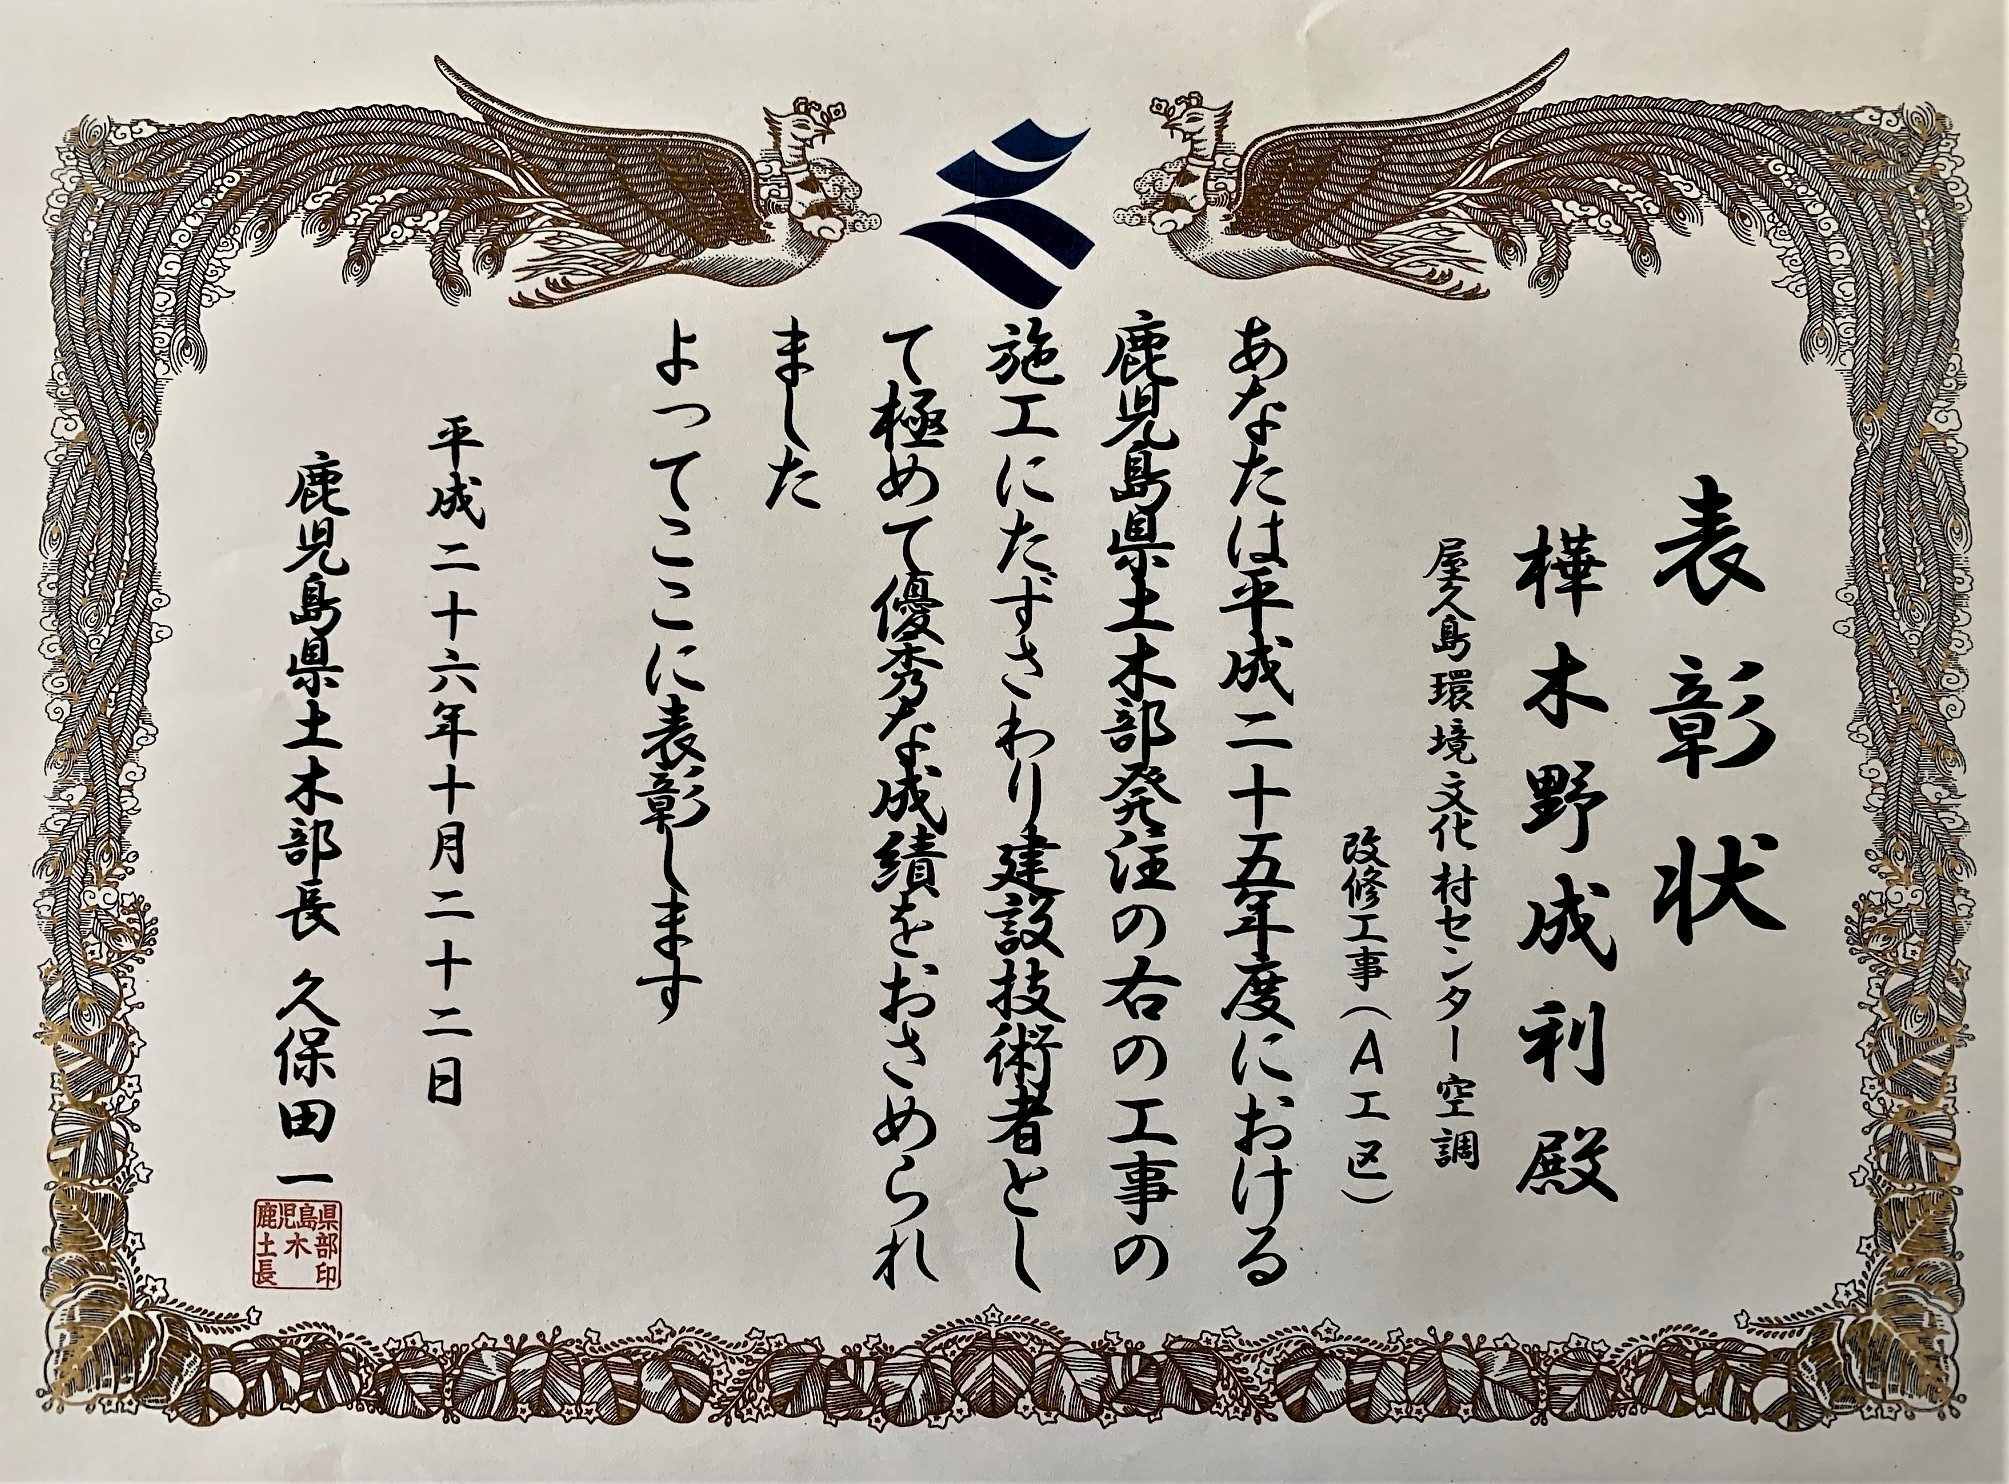 表彰状
樺木野成利殿
屋久島環境文化村センター空調
改修工事（A工区）
あなたは平成二十五年度における
鹿児島県土木部発注の右の工事の
施工にたずさわり建設技術者とし
て極めて優秀な成績をおさめられ
ました
よってここに表彰します
平成二十六年十月二十二日
鹿児島県土木部長 久保田一
鹿児島県
土木部
長印